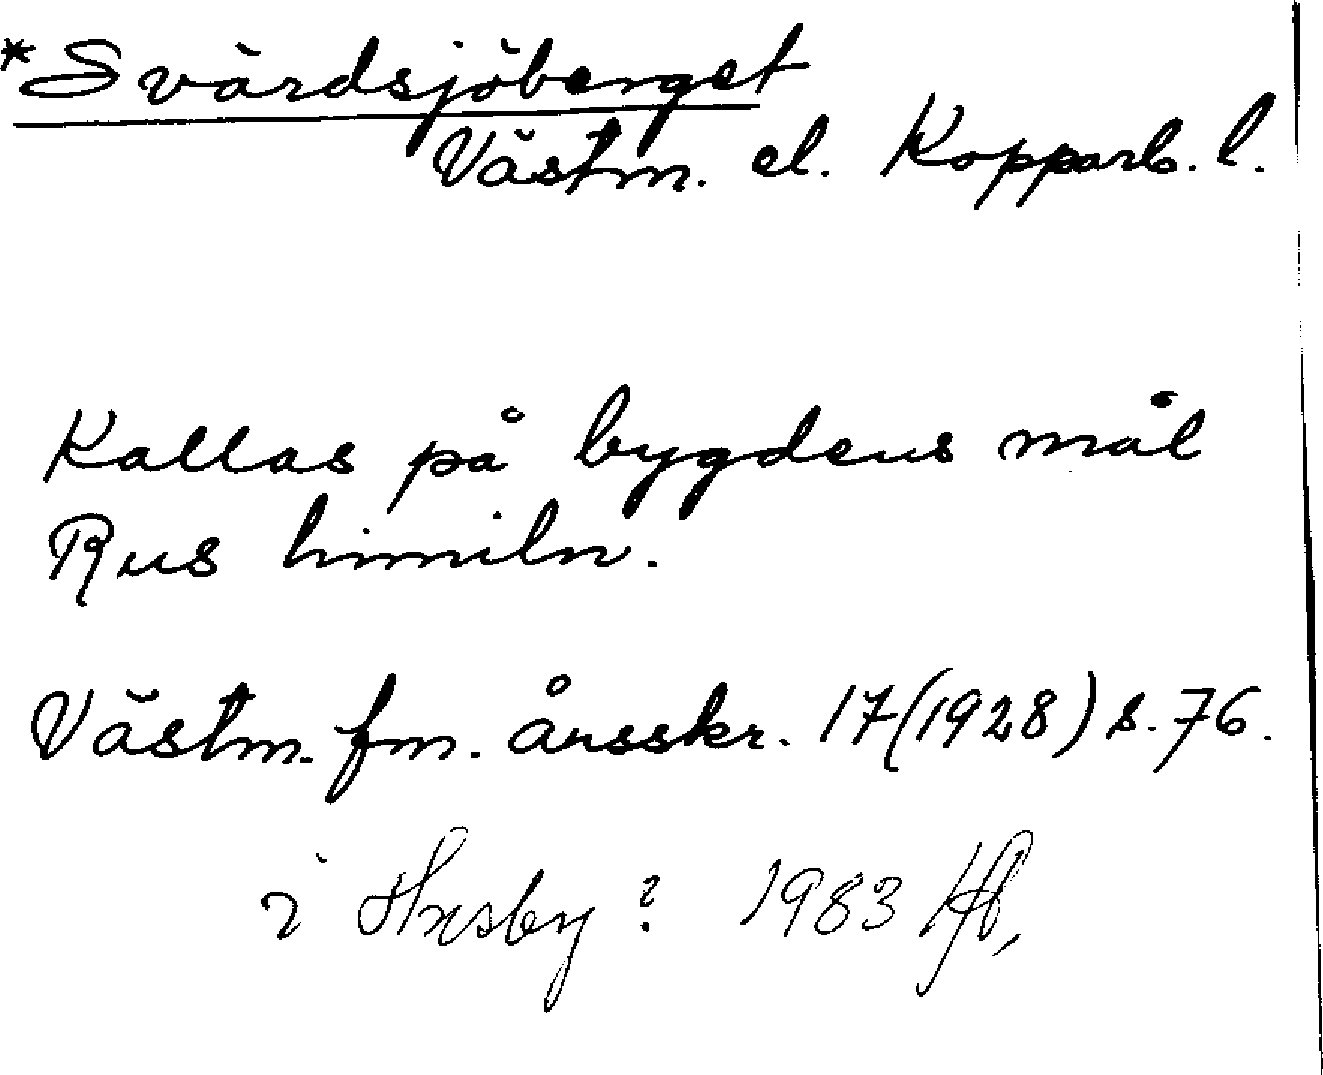 *Svärdsjöberget
Västm. el. Kopparb. l.
Kallas på bygdens mål
Rus himiln.
Västm. fm. årsskr. 17(1928) s. 76.
i Husby? 1983